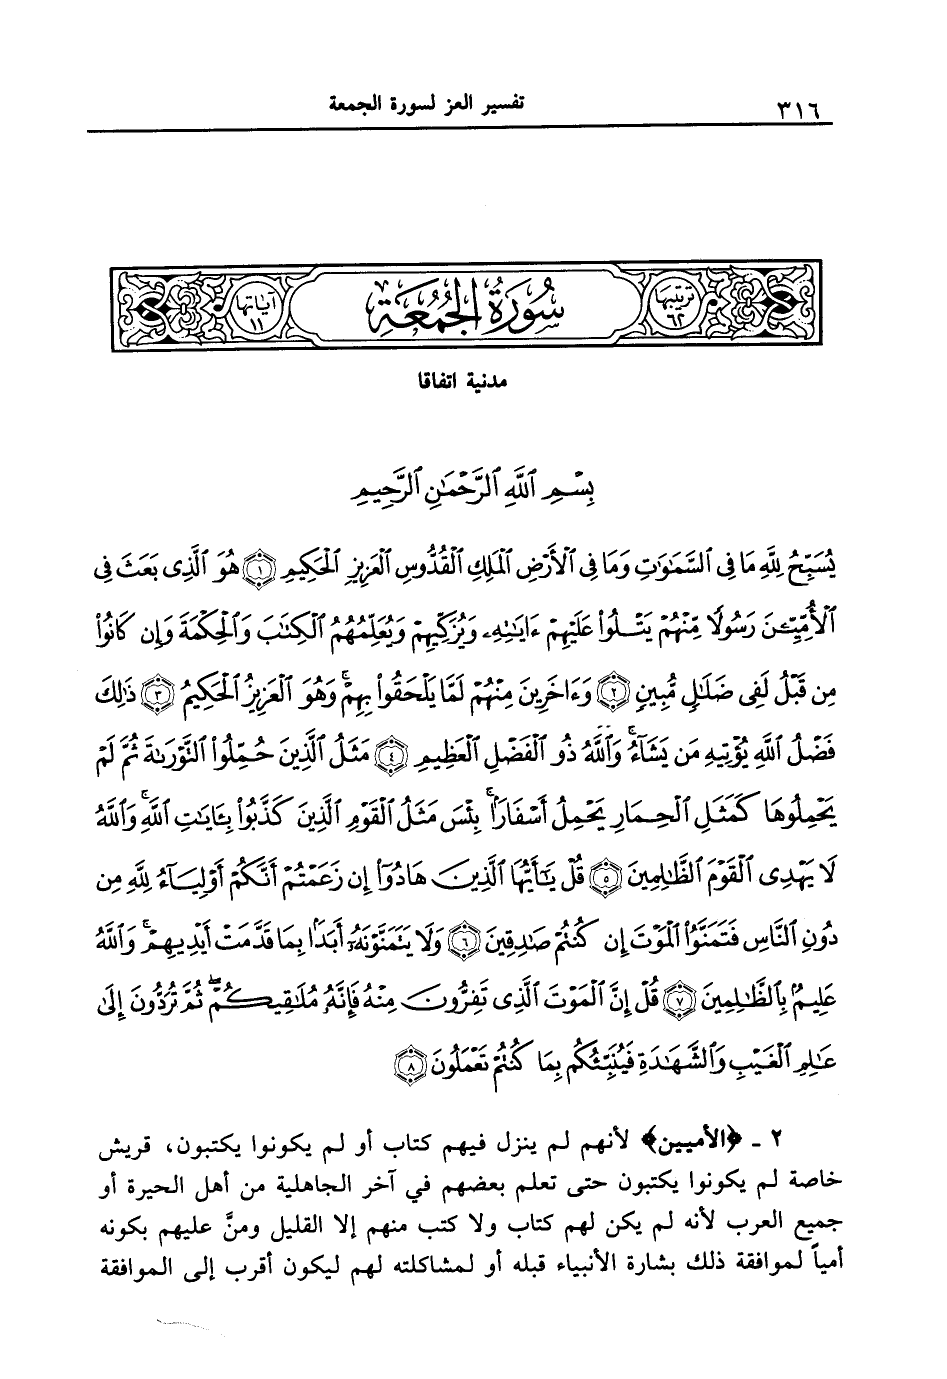 ٣١٦
تفسير العز لسورة الجمعة
ترتيبها ٦٢
سُورَةُ الجُمُعَةِ
آياتها ١١
مدنية اتفاقا
بِسْمِ ٱللَّهِ ٱلرَّحْمَٰنِ ٱلرَّحِيمِ
يُسَبِّحُ لِلَّهِ مَا فِى ٱلسَّمَٰوَٰتِ وَمَا فِى ٱلْأَرْضِ ٱلْمَلِكِ ٱلْقُدُّوسِ ٱلْعَزِيزِ ٱلْحَكِيمِ ﴿١﴾ هُوَ ٱلَّذِى بَعَثَ فِى
ٱلْأُمِّيِّـۧنَ رَسُولًا مِّنْهُمْ يَتْلُوا۟ عَلَيْهِمْ ءَايَٰتِهِۦ وَيُزَكِّيهِمْ وَيُعَلِّمُهُمُ ٱلْكِتَٰبَ وَٱلْحِكْمَةَ وَإِن كَانُوا۟
مِن قَبْلُ لَفِى ضَلَٰلٍ مُّبِينٍ ﴿٢﴾ وَءَاخَرِينَ مِنْهُمْ لَمَّا يَلْحَقُوا۟ بِهِمْ ۚ وَهُوَ ٱلْعَزِيزُ ٱلْحَكِيمُ ﴿٣﴾ ذَٰلِكَ
فَضْلُ ٱللَّهِ يُؤْتِيهِ مَن يَشَآءُ ۚ وَٱللَّهُ ذُو ٱلْفَضْلِ ٱلْعَظِيمِ ﴿٤﴾ مَثَلُ ٱلَّذِينَ حُمِّلُوا۟ ٱلتَّوْرَىٰةَ ثُمَّ لَمْ
يَحْمِلُوهَا كَمَثَلِ ٱلْحِمَارِ يَحْمِلُ أَسْفَارًۢا ۚ بِئْسَ مَثَلُ ٱلْقَوْمِ ٱلَّذِينَ كَذَّبُوا۟ بِـَٔايَٰتِ ٱللَّهِ ۚ وَٱللَّهُ
لَا يَهْدِى ٱلْقَوْمَ ٱلظَّٰلِمِينَ ﴿٥﴾ قُلْ يَٰٓأَيُّهَا ٱلَّذِينَ هَادُوٓا۟ إِن زَعَمْتُمْ أَنَّكُمْ أَوْلِيَآءُ لِلَّهِ مِن
دُونِ ٱلنَّاسِ فَتَمَنَّوُا۟ ٱلْمَوْتَ إِن كُنتُمْ صَٰدِقِينَ ﴿٦﴾ وَلَا يَتَمَنَّوْنَهُۥٓ أَبَدًۢا بِمَا قَدَّمَتْ أَيْدِيهِمْ ۚ وَٱللَّهُ
عَلِيمٌۢ بِٱلظَّٰلِمِينَ ﴿٧﴾ قُلْ إِنَّ ٱلْمَوْتَ ٱلَّذِى تَفِرُّونَ مِنْهُ فَإِنَّهُۥ مُلَٰقِيكُمْ ۖ ثُمَّ تُرَدُّونَ إِلَىٰ
عَٰلِمِ ٱلْغَيْبِ وَٱلشَّهَٰدَةِ فَيُنَبِّئُكُم بِمَا كُنتُمْ تَعْمَلُونَ ﴿٨﴾
٢ ـ ﴿الأميين﴾ لأنهم لم ينزل فيهم كتاب أو لم يكونوا يكتبون، قريش
خاصة لم يكونوا يكتبون حتى تعلم بعضهم في آخر الجاهلية من أهل الحيرة أو
جميع العرب لأنه لم يكن لهم كتاب ولا كتب منهم إلا القليل ومنَّ عليهم بكونه
أمياً لموافقة ذلك بشارة الأنبياء قبله أو لمشاكلته لهم ليكون أقرب إلى الموافقة